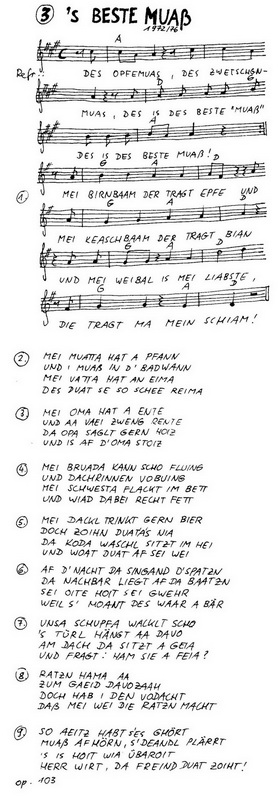 ③ 's BESTE MUAß
1972/76
A
Refr.:
DES OPFEMUAS, DES ZWETSCHGN-
D G
MUAS, DES IS DES BESTE "MUAß"
A
DES IS DES BESTE MUAß!
G A D
① MEI BIRNBAAM DER TRAGT EPFE UND
G A D
MEI KEASCHBAAM DER TRAGT BIAN
G
UND MEI WEIBAL IS MEI LIABSTE,
G A D
DIE TRAGT MA MEIN SCHIAM!
② MEI MUATTA HAT A PFANN
UND I MUAß IN D' BADWANN
MEI VATTA HAT AN EIMA
DES DUAT SE SO SCHEE REIMA
③ MEI OMA HAT A ENTE
UND AA VAEI ZWENG RENTE
DA OPA SAGLT GERN HOIZ
UND IS AF D'OMA STOIZ
④ MEI BRUADA KANN SCHO FLUING
UND DACHRINNEN VOBUING
MEI SCHWESTA FLACKT IM BETT
UND WIAD DABEI RECHT FETT
⑤ MEI DACKL TRINKT GERN BIER
DOCH ZOIHN DUATA'S NIA
DA KODA WASCHL SITZT IM HEI
UND WOAT DUAT AF SEI WEI
⑥ AF D'NACHT DA SINGAND D'SPATZN
DA NACHBAR LIEGT AF DA BAATZN
SEI OITE HOIT SEI GWEHR
WEIL S' MOANT DES WAAR A BÄR
⑦ UNSA SCHUPFA WACKLT SCHO
'S TÜRL HÄNGT AA DAVO
AM DACH DA SITZT A GEIA
UND FRAGT: HAM SIE A FEIA?
⑧ RATZN HAMA AA
ZUM GAEID DAVOZAAH
DOCH HAB I DEN VODACHT
DAß MEI WEI DIE RATZN MACHT
⑨ SO AEITZ HABT S'ES GHÖRT
MUAß AFHÖRN, S'DEANDL PLÄRRT
'S IS HOIT WIA ÜBAROIT
HERR WIRT, DA FREIND DUAT ZOIHT!
op. 103